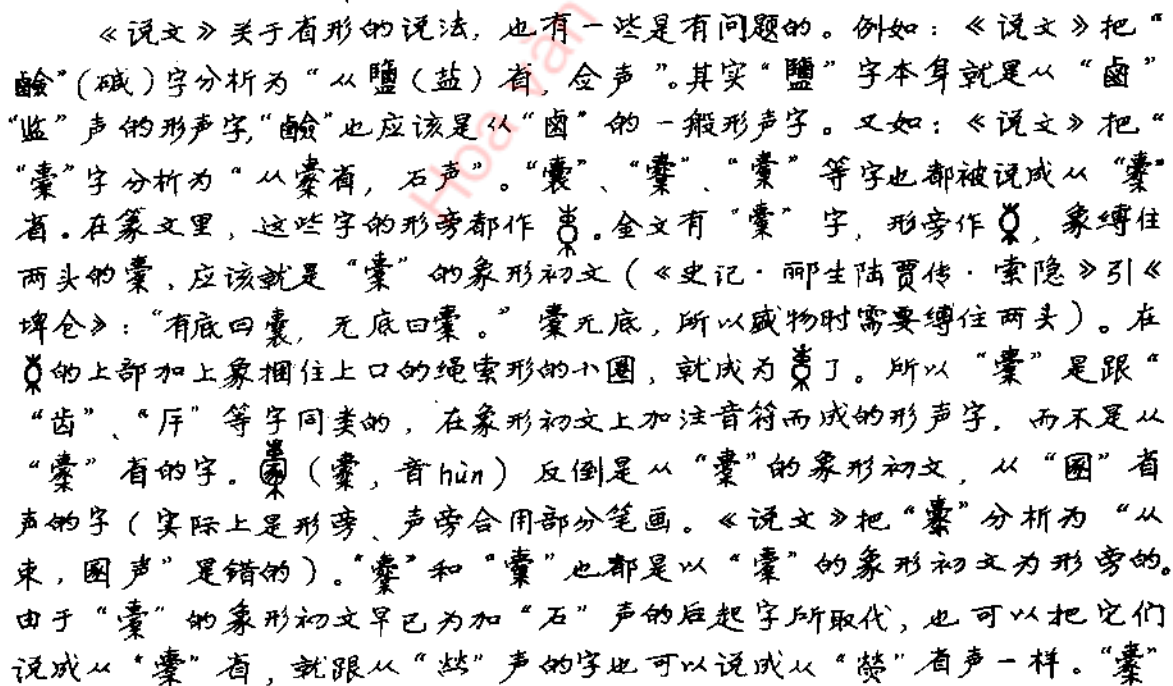 《说文》关于省形的说法,也有一些是有问题的。例如:《说文》把“
鹼”(碱)字分析为“从鹽(盐)省,佥声”。其实“鹽”字本身就是从“卤”
“监”声的形声字,“鹼”也应该是从“卤”的一般形声字。又如:《说文》把“
“橐”字分析为“从㯻省,石声”。“囊”、“櫜”、“” 等字也都被说成从“㯻”
省。在篆文里,这些字的形旁都作。金文有“橐”字,形旁作,象缚住
两头的橐,应该就是“橐”的象形初文(《史记·郦生陆贾传·索隐》引《
埤仓》:“有底曰囊,无底曰橐。”橐无底,所以盛物时需要缚住两头)。在
的上部加上象捆住上口的绳索形的小圈,就成为了。所以“橐”是跟“
“齿”、“斥”等字同类的,在象形初文上加注音符而成的形声字,而不是从
“㯻”省的字。(㯻,音hùn)反倒是从“橐”的象形初文,从“圂”省
声的字(实际上是形旁、声旁合用部分笔画。《说文》把“㯻”分析为“从
束,圂声”是错的)。“櫜”和“囊”也都是以“橐”的象形初文为形旁的。
由于“橐”的象形初文早已为加“石”声的后起字所取代,也可以把它们
说成从“橐”省,就跟从“𤇾”声的字也可以说成从“荧”省声一样。“㯻”
Hoa văn